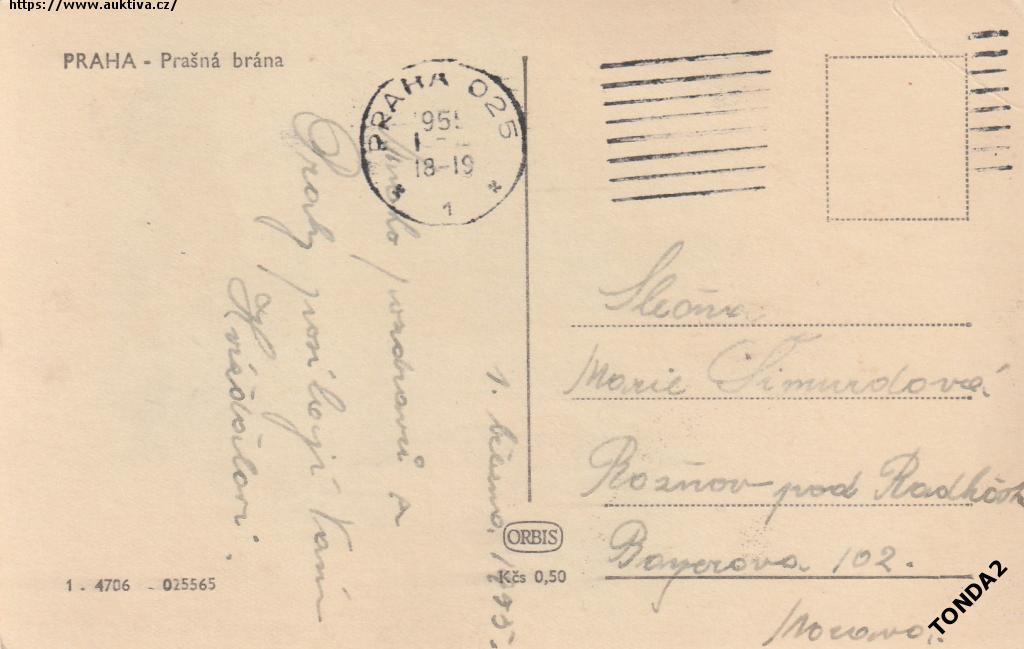 https://www.auktiva.cz/
PRAHA - Prašná brána
PRAHA 025
18-19
1
1. března 1955.
pozdravů a
Prahy posílají Vám
Slečna
Marie Šimurdová
Rožnov pod Radhošt
Bayerova 102.
Morava.
ORBIS
Kčs 0,50
1 - 4706 - 025565
TONDA2